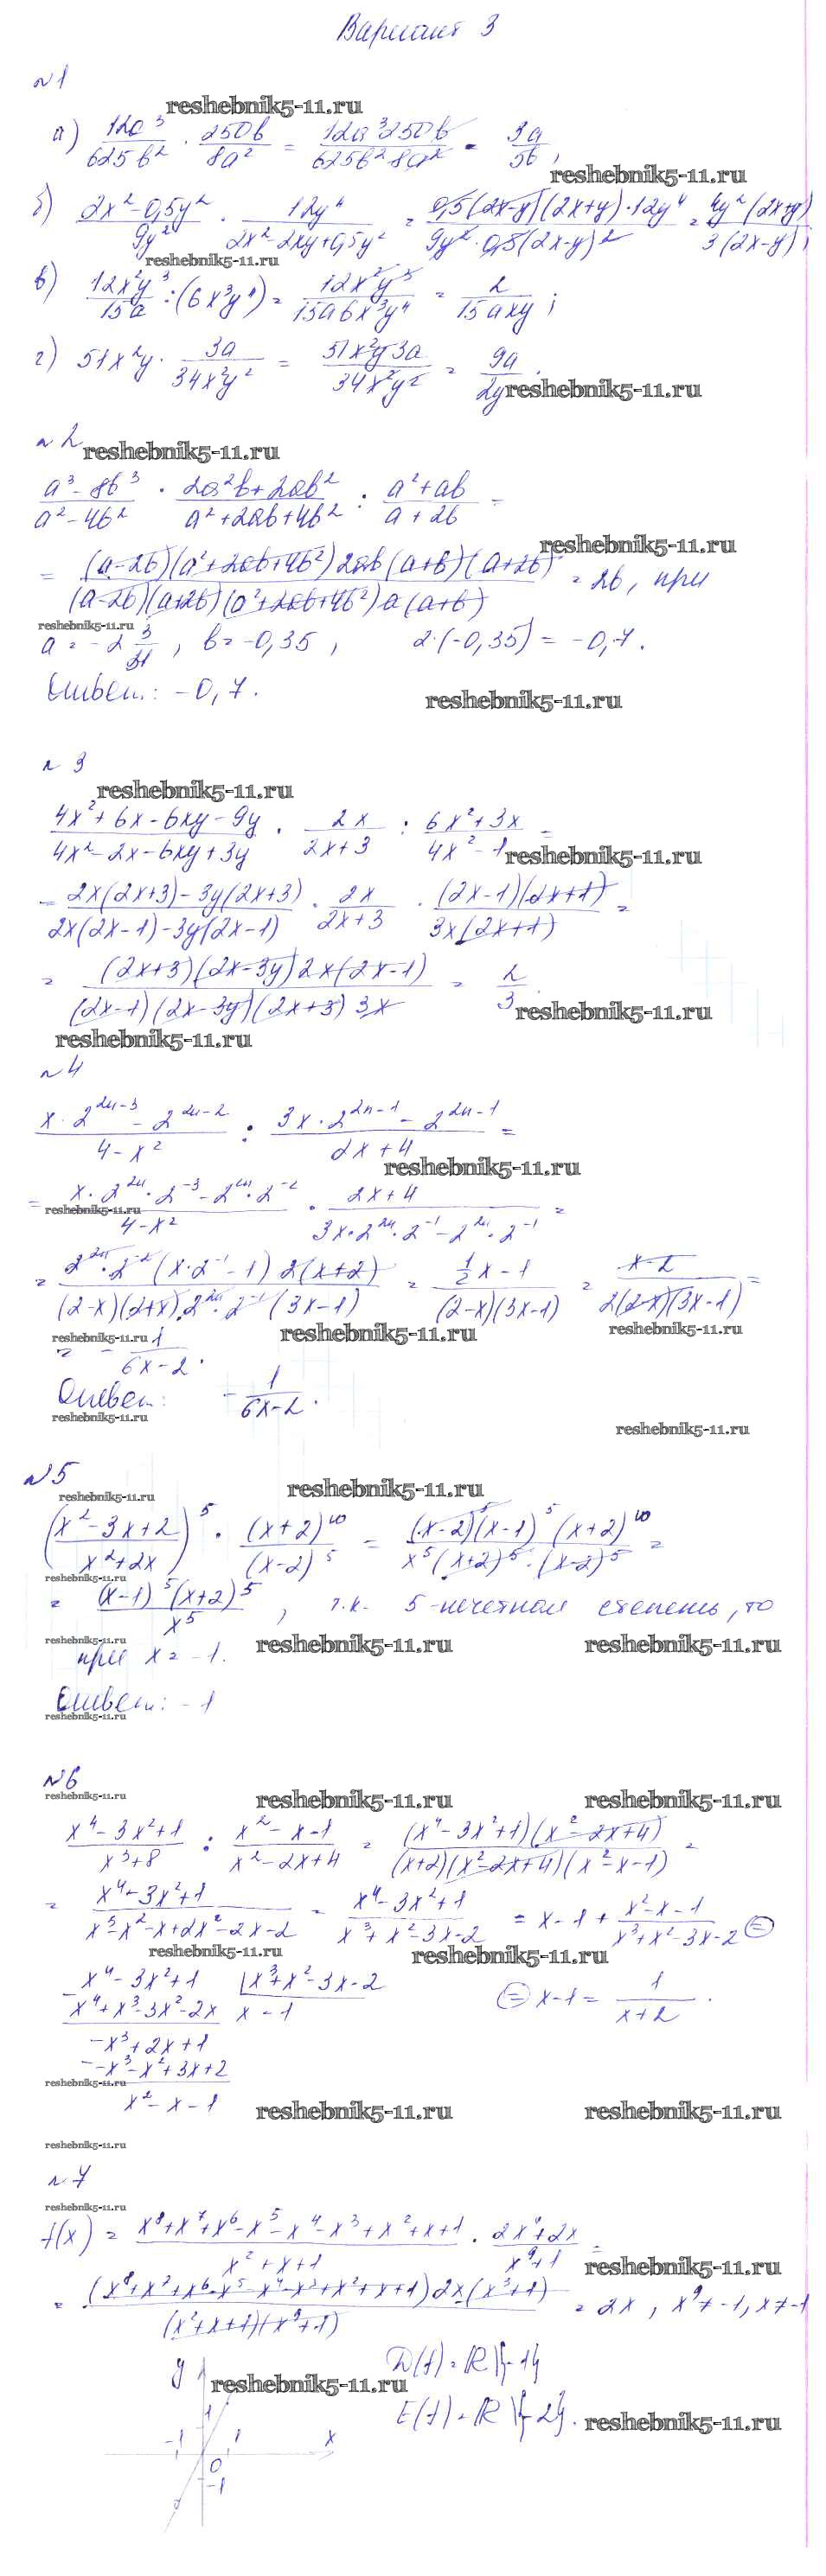 Вариант 3
№1
reshebnik5-11.ru
а) 12a³/625b² · 250b/8a² = 12a³250b/625b²8a² = 3a/5b,
reshebnik5-11.ru
б) 2x²-0,5y²/9y² · 12y⁴/2x²-2xy+0,5y² = 0,5(2x-y)(2x+y)·12y⁴/9y²·0,5(2x-y)² = 4y²(2x+y)/3(2x-y);
reshebnik5-11.ru
в) 12x²y³/15a : (6x³y⁴) = 12x²y³/15a6x³y⁴ = 2/15axy;
г) 51x²y · 3a/34x²y² = 51x²y3a/34x²y² = 9a/2y
reshebnik5-11.ru
№2
reshebnik5-11.ru
a³-8b³/a²-4b² · 2a²b+2ab²/a²+2ab+4b² : a²+ab/a+2b =
reshebnik5-11.ru
= (a-2b)(a²+2ab+4b²)2ab(a+b)(a+2b)/(a-2b)(a+2b)(a²+2ab+4b²)a(a+b) = 2b, при
reshebnik5-11.ru
a = -2 3/31, b=-0,35, 2·(-0,35) = -0,7.
Ответ: -0,7.
reshebnik5-11.ru
№3
reshebnik5-11.ru
4x²+6x-6xy-9y/4x²-2x-6xy+3y · 2x/2x+3 : 6x²+3x/4x²-1 =
reshebnik5-11.ru
= 2x(2x+3)-3y(2x+3)/2x(2x-1)-3y(2x-1) · 2x/2x+3 · (2x-1)(2x+1)/3x(2x+1) =
= (2x+3)(2x-3y)2x(2x-1)/(2x-1)(2x-3y)(2x+3)3x = 2/3.
reshebnik5-11.ru
reshebnik5-11.ru
№4
x·2²ⁿ⁻³-2²ⁿ⁻²/4-x² : 3x·2²ⁿ⁻¹-2²ⁿ⁻¹/2x+4 =
reshebnik5-11.ru
= x·2²ⁿ·2⁻³-2²ⁿ·2⁻²/4-x² · 2x+4/3x·2²ⁿ·2⁻¹-2²ⁿ·2⁻¹ =
reshebnik5-11.ru
= 2²ⁿ·2⁻²(x·2⁻¹-1)2(x+2)/(2-x)(2+x)·2²ⁿ·2⁻¹(3x-1) = 1/2x-1/(2-x)(3x-1) = x-2/2(2-x)(3x-1) =
reshebnik5-11.ru reshebnik5-11.ru reshebnik5-11.ru
= - 1/6x-2.
Ответ: - 1/6x-2.
reshebnik5-11.ru
reshebnik5-11.ru
№5
reshebnik5-11.ru reshebnik5-11.ru
(x²-3x+2/x²+2x)⁵ · (x+2)¹⁰/(x-2)⁵ = (x-2)⁵(x-1)⁵(x+2)¹⁰/x⁵(x+2)⁵·(x-2)⁵ =
reshebnik5-11.ru
= (x-1)⁵(x+2)⁵/x⁵, т.к. 5-нечетная степень, то
reshebnik5-11.ru reshebnik5-11.ru reshebnik5-11.ru
при x = -1.
Ответ: -1
reshebnik5-11.ru
№6
reshebnik5-11.ru reshebnik5-11.ru reshebnik5-11.ru
x⁴-3x²+1/x³+8 : x²-x-1/x²-2x+4 = (x⁴-3x²+1)(x²-2x+4)/(x+2)(x²-2x+4)(x²-x-1) =
= x⁴-3x²+1/x³-x²-x+2x²-2x-2 = x⁴-3x²+1/x³+x²-3x-2 = x-1+ x²-x-1/x³+x²-3x-2 =
reshebnik5-11.ru reshebnik5-11.ru
x⁴-3x²+1 |x³+x²-3x-2 = x-1 = 1/x+2.
x⁴+x³-3x²-2x x-1
-x³+2x+1
-x³-x²+3x+2
reshebnik5-11.ru
x²-x-1
reshebnik5-11.ru reshebnik5-11.ru
reshebnik5-11.ru
№7
reshebnik5-11.ru
f(x) = x⁸+x⁷+x⁶-x⁵-x⁴-x³+x²+x+1/x²+x+1 · 2x⁴+2x/x⁹+1 =
reshebnik5-11.ru
= (x⁸+x⁷+x⁶-x⁵-x⁴-x³+x²+x+1)2x(x³+1)/(x²+x+1)(x⁹+1) = 2x, x⁹≠-1, x≠-1
y D(f) = R\{-1}
reshebnik5-11.ru
1 E(f) = R\{-2}.
reshebnik5-11.ru
-1 1 x
0
-1